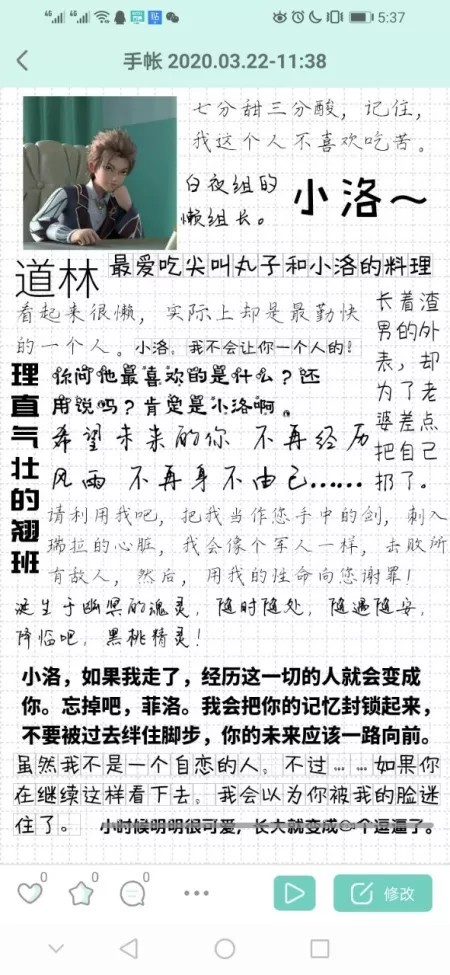 5:37
手帐 2020.03.22-11:38
七分甜三分酸，记住，
我这个人不喜欢吃苦。
白夜组的
懒组长。
小洛～
道林
最爱吃尖叫丸子和小洛的料理
看起来很懒，实际上却是最勤快
的一个人。
小洛，我不会让你一个人的！
长着渣
男的外
表，却
为了老
婆差点
把自己
扔了。
理直气壮的翘班
你问他最喜欢的是什么？还
用说吗？肯定是小洛啊。
希望未来的你 不再经历
风雨 不再身不由己……
请利用我吧，把我当作您手中的剑，刺入
瑞拉的心脏，我会像个军人一样，击败所
有敌人，然后，用我的性命向您谢罪！
诞生于幽冥的魂灵，随时随处，随遇随安，
降临吧，黑桃精灵！
小洛，如果我走了，经历这一切的人就会变成
你。忘掉吧，菲洛。我会把你的记忆封锁起来，
不要被过去绊住脚步，你的未来应该一路向前。
虽然我不是一个自恋的人，不过……如果你
在继续这样看下去，我会以为你被我的脸迷
住了。
小时候明明很可爱，长大就变成一个逗逼了。
0
0
0
修改